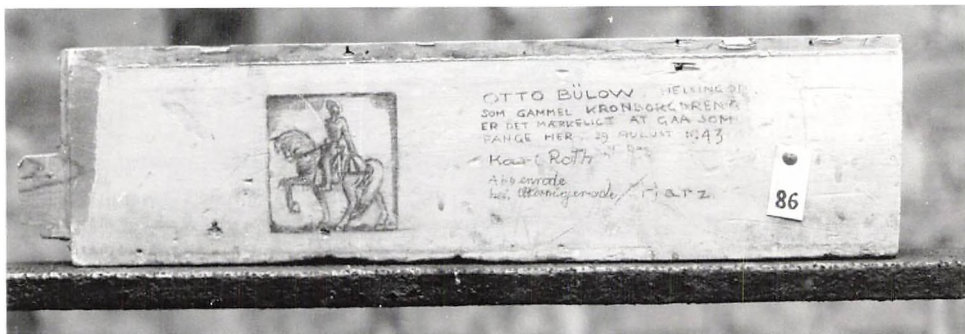 OTTO BÜLOW HELSINGØR
SOM GAMMEL KRONBORGDRENG
ER DET MÆRKELIGT AT GAA SOM
FANGE HER. 29 AUGUST 1943
Karl Roth
Abbenrode
bei / Harz.
86